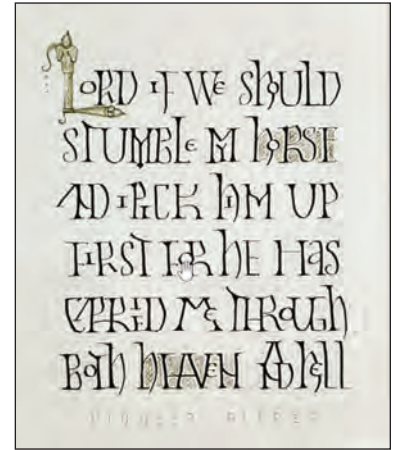 LORD IF WE SHOULD
STUMBLE MY HORSE
AND I PICK HIM UP
FIRST FOR HE HAS
CARRIED ME THROUGH
BOTH HEAVEN AND HELL